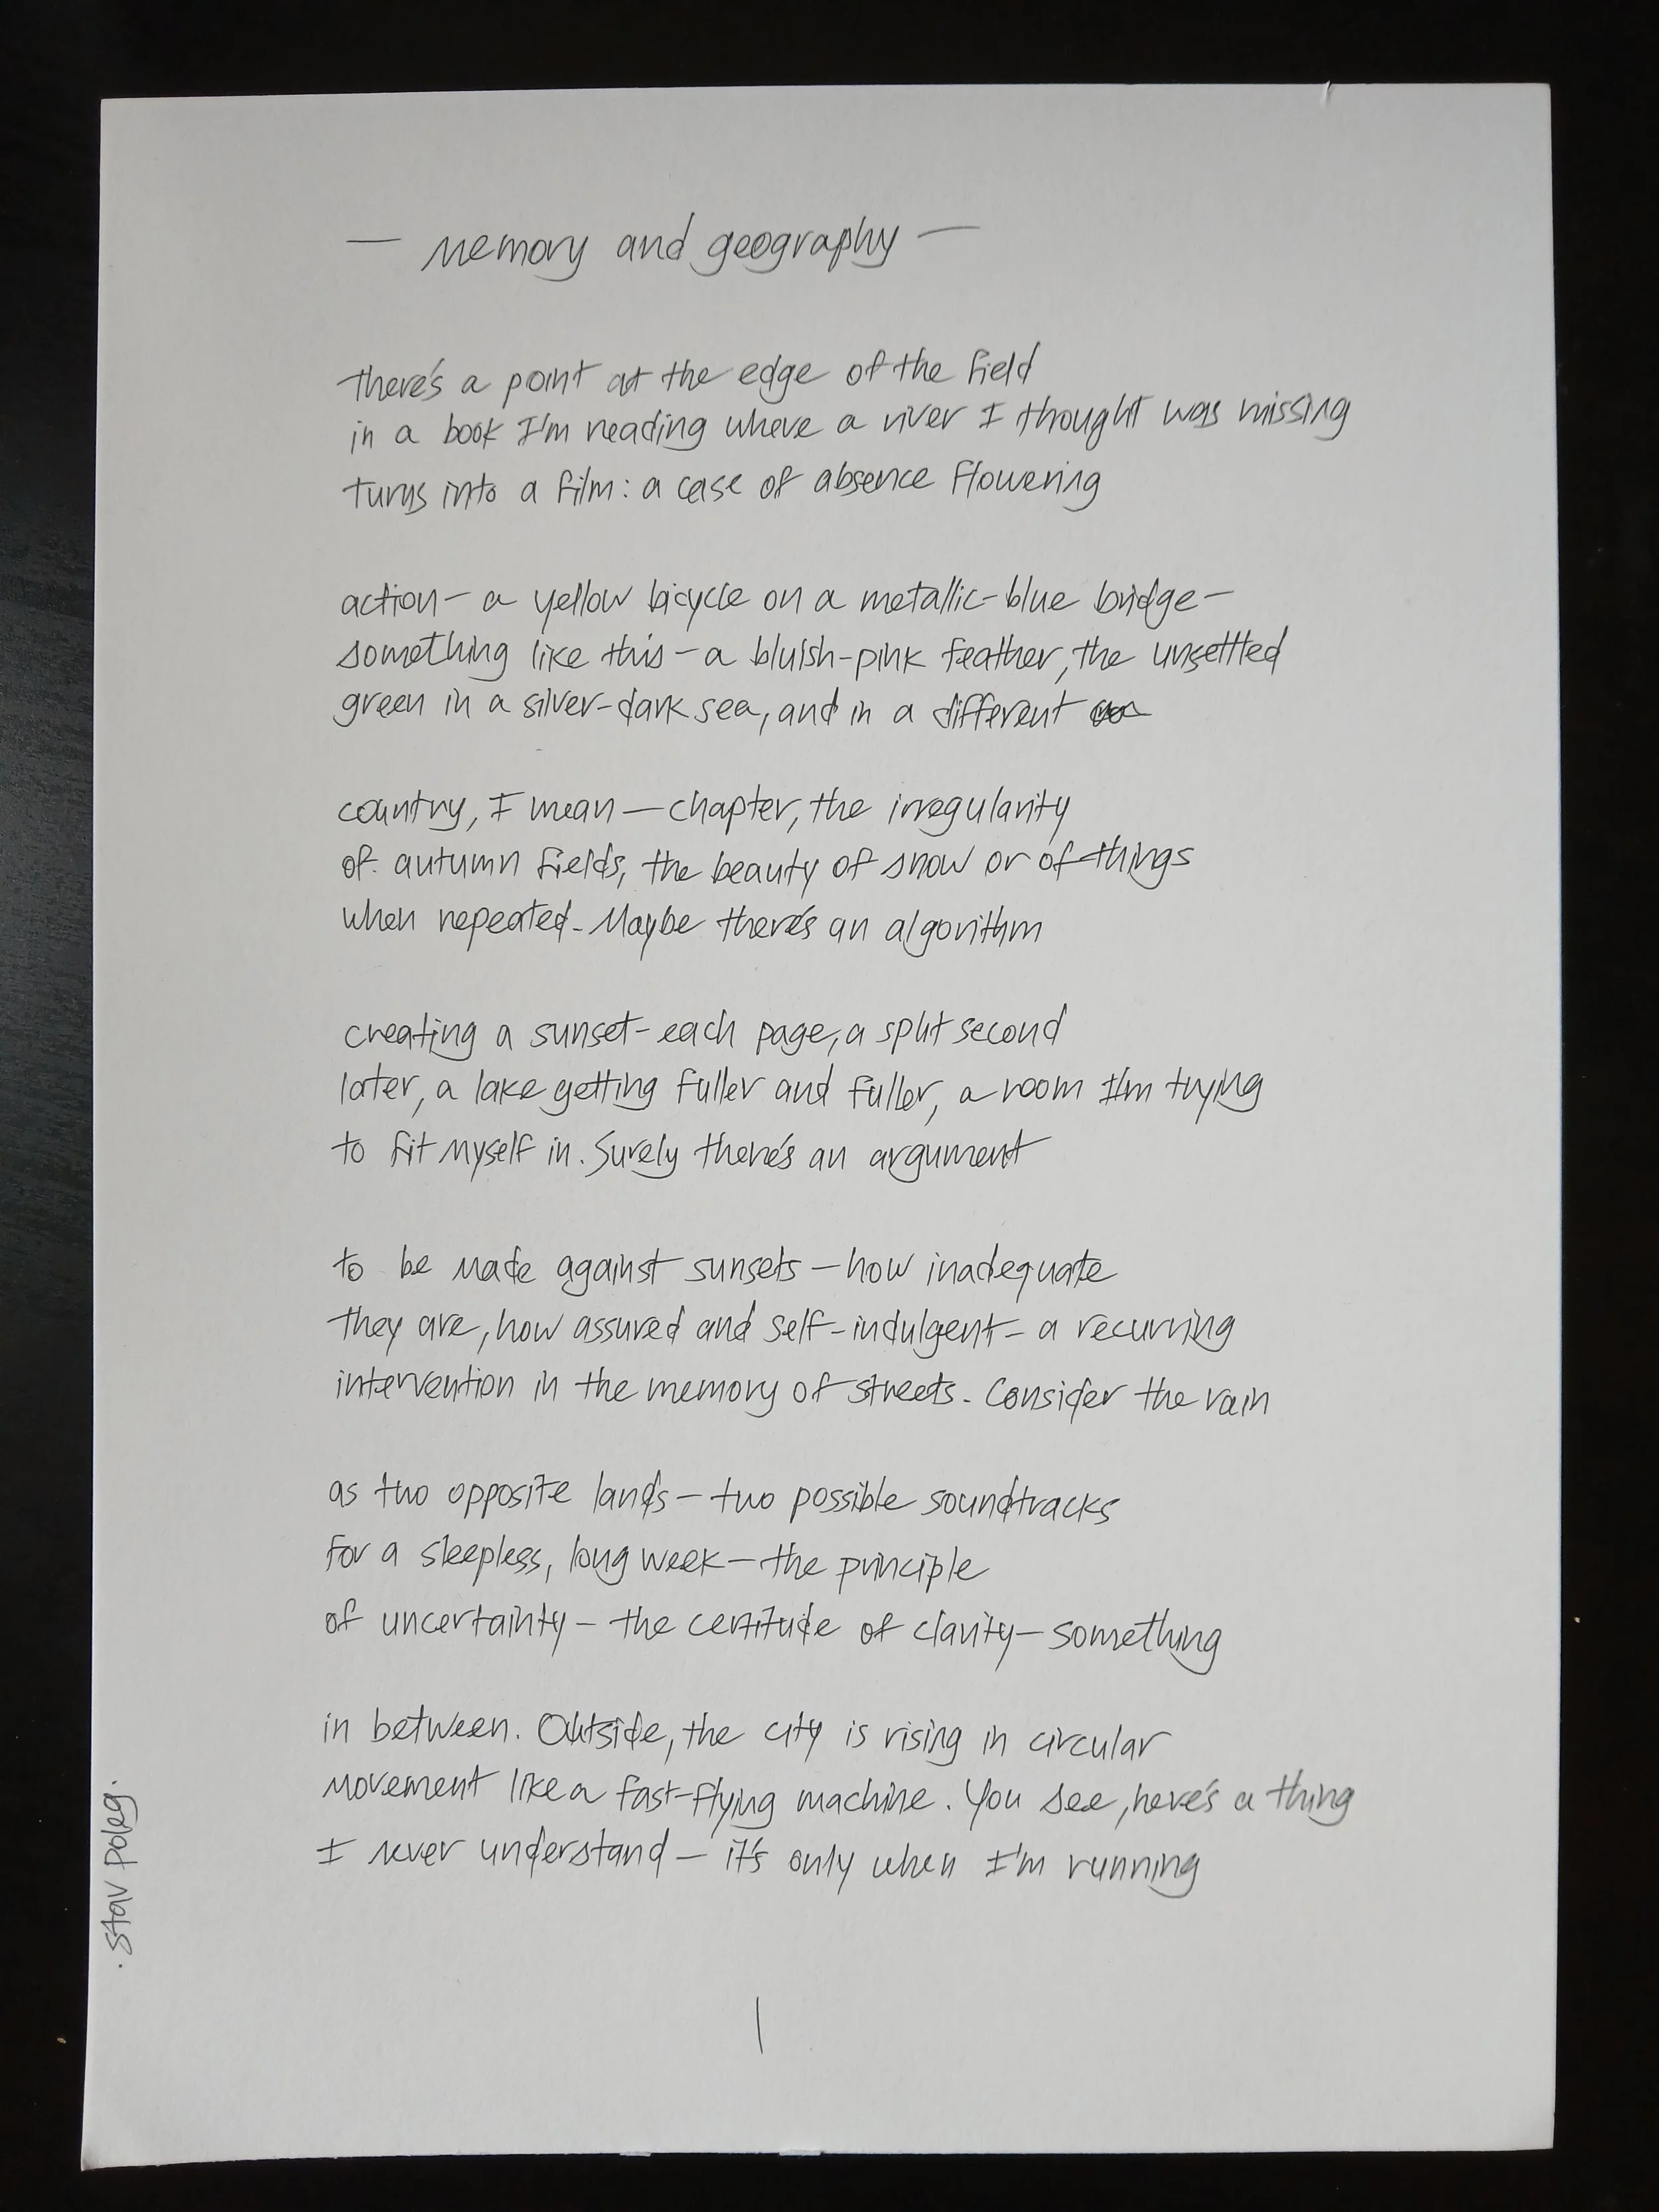 — Memory and geography —
there's a point at the edge of the field
in a book I'm reading where a river I thought was missing
turns into a film: a case of absence flowering
action — a yellow bicycle on a metallic-blue bridge —
something like this — a bluish-pink feather, the unsettled
green in a silver-dark sea, and in a different
country, I mean — chapter, the irregularity
of autumn fields, the beauty of snow or of things
when repeated. Maybe there's an algorithm
creating a sunset - each page, a split second
later, a lake getting fuller and fuller, a room I'm trying
to fit myself in. Surely there's an argument
to be made against sunsets — how inadequate
they are, how assured and self-indulgent — a recurring
intervention in the memory of streets. Consider the rain
as two opposite lands — two possible soundtracks
for a sleepless, long week — the principle
of uncertainty — the certitude of clarity — something
in between. Outside, the city is rising in circular
movement like a fast-flying machine. You see, here's a thing
I never understand — it's only when I'm running
1
. Stav Poleg.